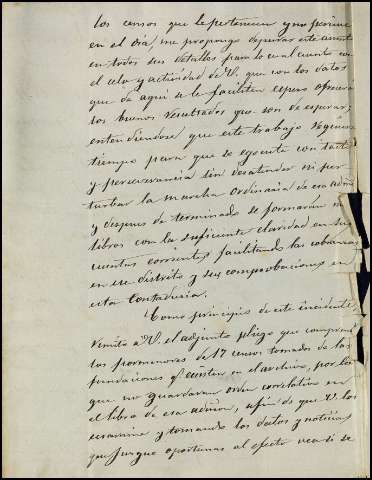 los censos que le pertenecen y no percibe
en el dia, me propongo depurar este asunto
en todos sus detalles para lo cual cuento con
el celo y actividad de V. que con los datos
que de aqui se le faciliten espero ofrecerá
los buenos resultados que son de esperar;
entendiendose que este trabajo requiere
tiempo para que se egecute con tacto
y perseverancia sin desatender ni per
turbar la marcha ordinaria de esa admon
y despues de terminado se formarán
libros con la suficiente claridad en sus
cuentas corrientes facilitando las cobranzas
en su distrito y sus comprobaciones en
esta Contaduria.
Como principio de este incidente,
remito a V. el adjunto pliego que comprende
los pormenores de 17 censos tomados de las
fundaciones q.e existen en el archivo, por los
que no guardaran orden correlativo en
el libro de esa admon, afin de que V. los
examine y tomando los datos y noticias
que juzgue oportunas al efecto vea si se